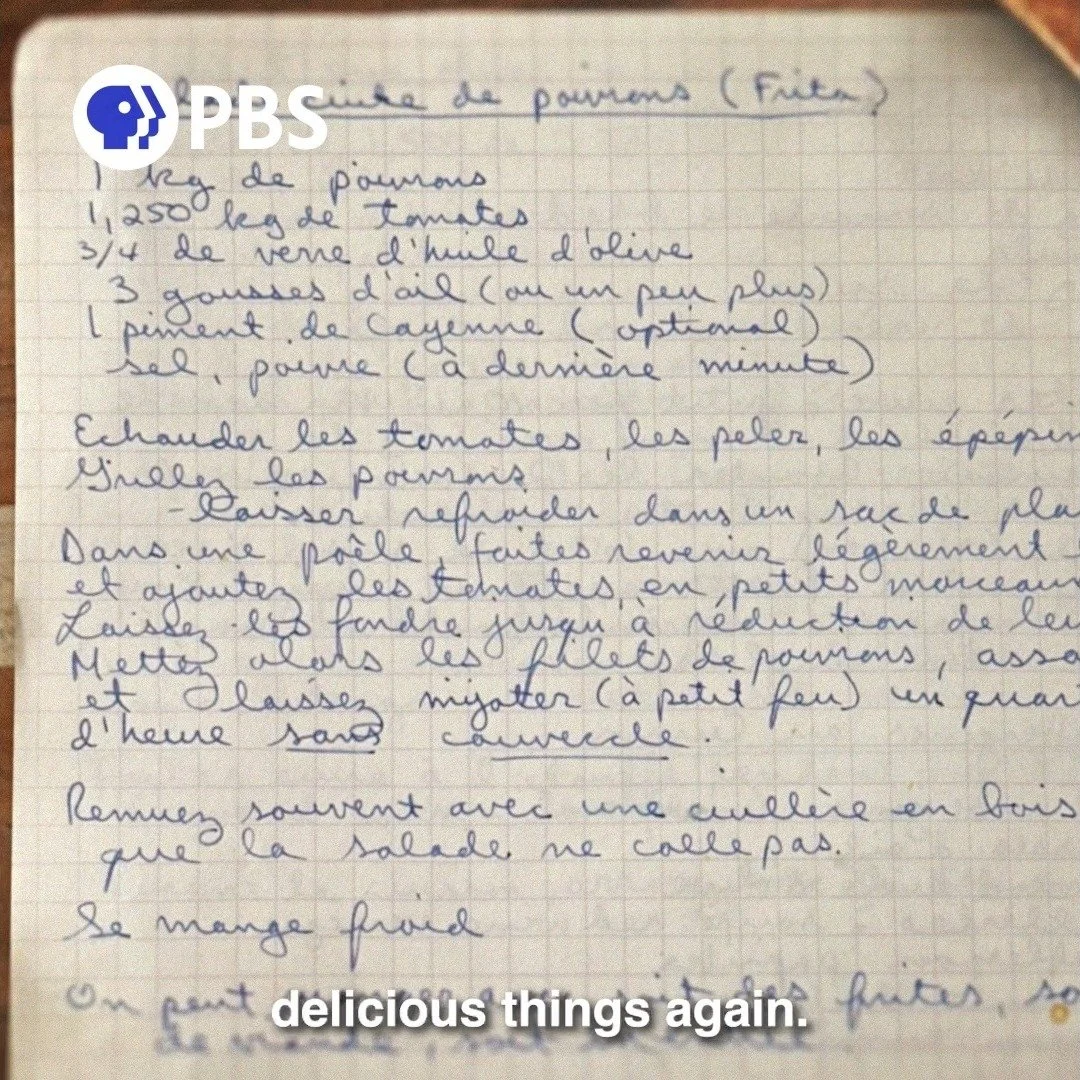 PBS
cuite de poivrons (Frita)
1 kg de poivrons
1,250 kg de tomates
3/4 de verre d'huile d'olive
3 gousses d'ail (ou un peu plus)
1 piment de Cayenne (optional)
sel, poivre (à dernière minute)
Echauder les tomates, les peler, les épépin
Grillez les poivrons
- Laisser refroider dans un sac de pla
Dans une poêle, faites revenir légèrement
et ajoutez les tomates, en petits morceaux
Laissez-les fondre jusqu'à réduction de leu
Mettez alors les filets de poivrons, assa
et laissez mijoter (à petit feu) un quar
d'heure sans couvercle.
Remuez souvent avec une cuillère en bois
que la salade ne colle pas.
Se mange froid
On peut des frites, so
de viande, soit
delicious things again.